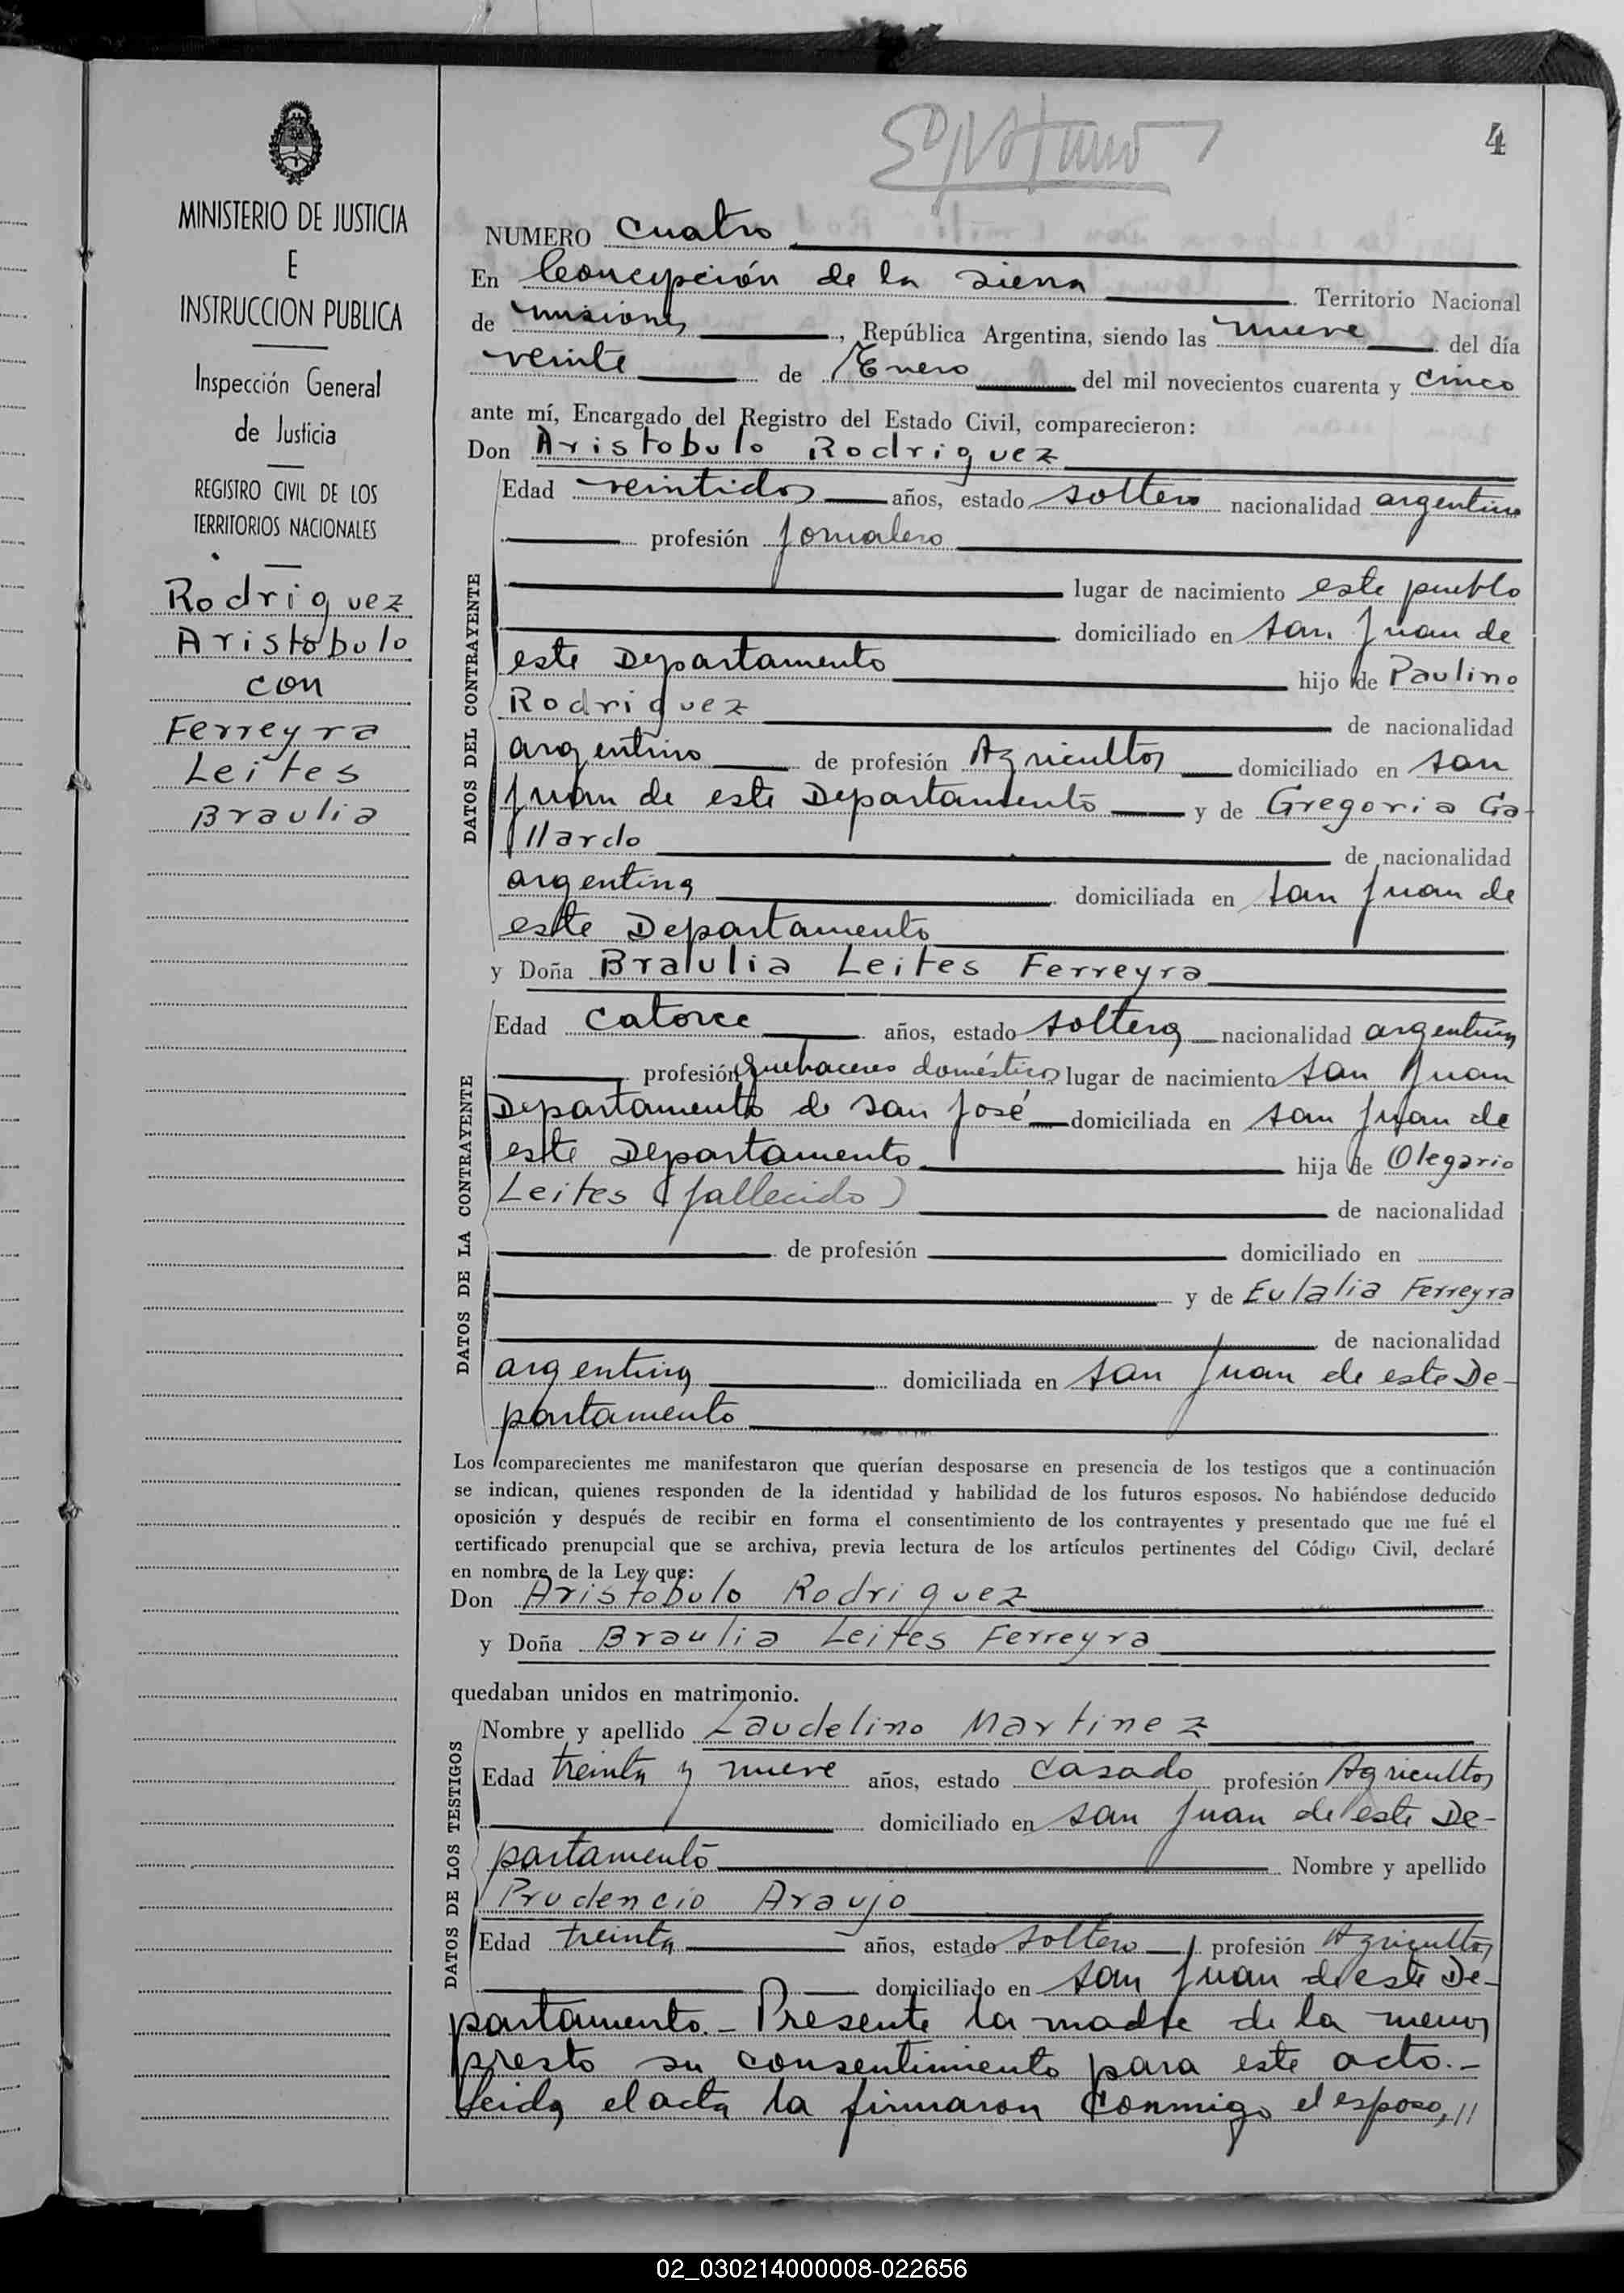 4
MINISTERIO DE JUSTICIA
E
INSTRUCCION PUBLICA
Inspección General
de Justicia
REGISTRO CIVIL DE LOS
TERRITORIOS NACIONALES
Rodriguez
Aristobulo
con
Ferreyra
Leites
Braulia
NUMERO Cuatro
En Concepción de la Sierra Territorio Nacional
de Misiones, República Argentina, siendo las nueve del día
veinte de Enero del mil novecientos cuarenta y cinco
ante mí, Encargado del Registro del Estado Civil, comparecieron:
Don Aristobulo Rodriguez
DATOS DEL CONTRAYENTE
Edad veintidos años, estado soltero nacionalidad argentino
profesión Jornalero
lugar de nacimiento este pueblo
domiciliado en San Juan de
este Departamento hijo de Paulino
Rodriguez de nacionalidad
argentino de profesión Agricultor domiciliado en San
Juan de este Departamento y de Gregoria Ga-
llardo de nacionalidad
argentina domiciliada en San Juan de
este Departamento
y Doña Braulia Leites Ferreyra
DATOS DE LA CONTRAYENTE
Edad Catorce años, estado soltera nacionalidad argentina
profesión quehaceres domésticos lugar de nacimiento San Juan
Departamento de San José domiciliada en San Juan de
este Departamento hija de Olegario
Leites (fallecido) de nacionalidad
de profesión domiciliado en
y de Eulalia Ferreyra
de nacionalidad
argentina domiciliada en San Juan de este De-
partamento
Los comparecientes me manifestaron que querían desposarse en presencia de los testigos que a continuación
se indican, quienes responden de la identidad y habilidad de los futuros esposos. No habiéndose deducido
oposición y después de recibir en forma el consentimiento de los contrayentes y presentado que me fué el
certificado prenupcial que se archiva, previa lectura de los artículos pertinentes del Código Civil, declaré
en nombre de la Ley que:
Don Aristobulo Rodriguez
y Doña Braulia Leites Ferreyra
quedaban unidos en matrimonio.
DATOS DE LOS TESTIGOS
Nombre y apellido Laudelino Martinez
Edad treinta y nueve años, estado Casado profesión Agricultor
domiciliado en San Juan de este De-
partamento Nombre y apellido
Prudencio Araujo
Edad treinta años, estado soltero profesión Agricultor
domiciliado en San Juan de este De-
partamento.- Presente la madre de la menor
presto su consentimiento para este acto.-
Leida el acta la firmaron conmigo el esposo, //
02_030214000008-022656